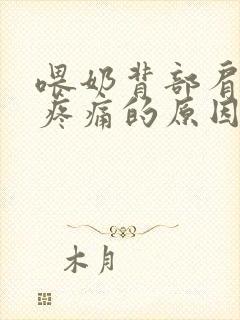 喂奶背部肩
疼痛的原因
木月